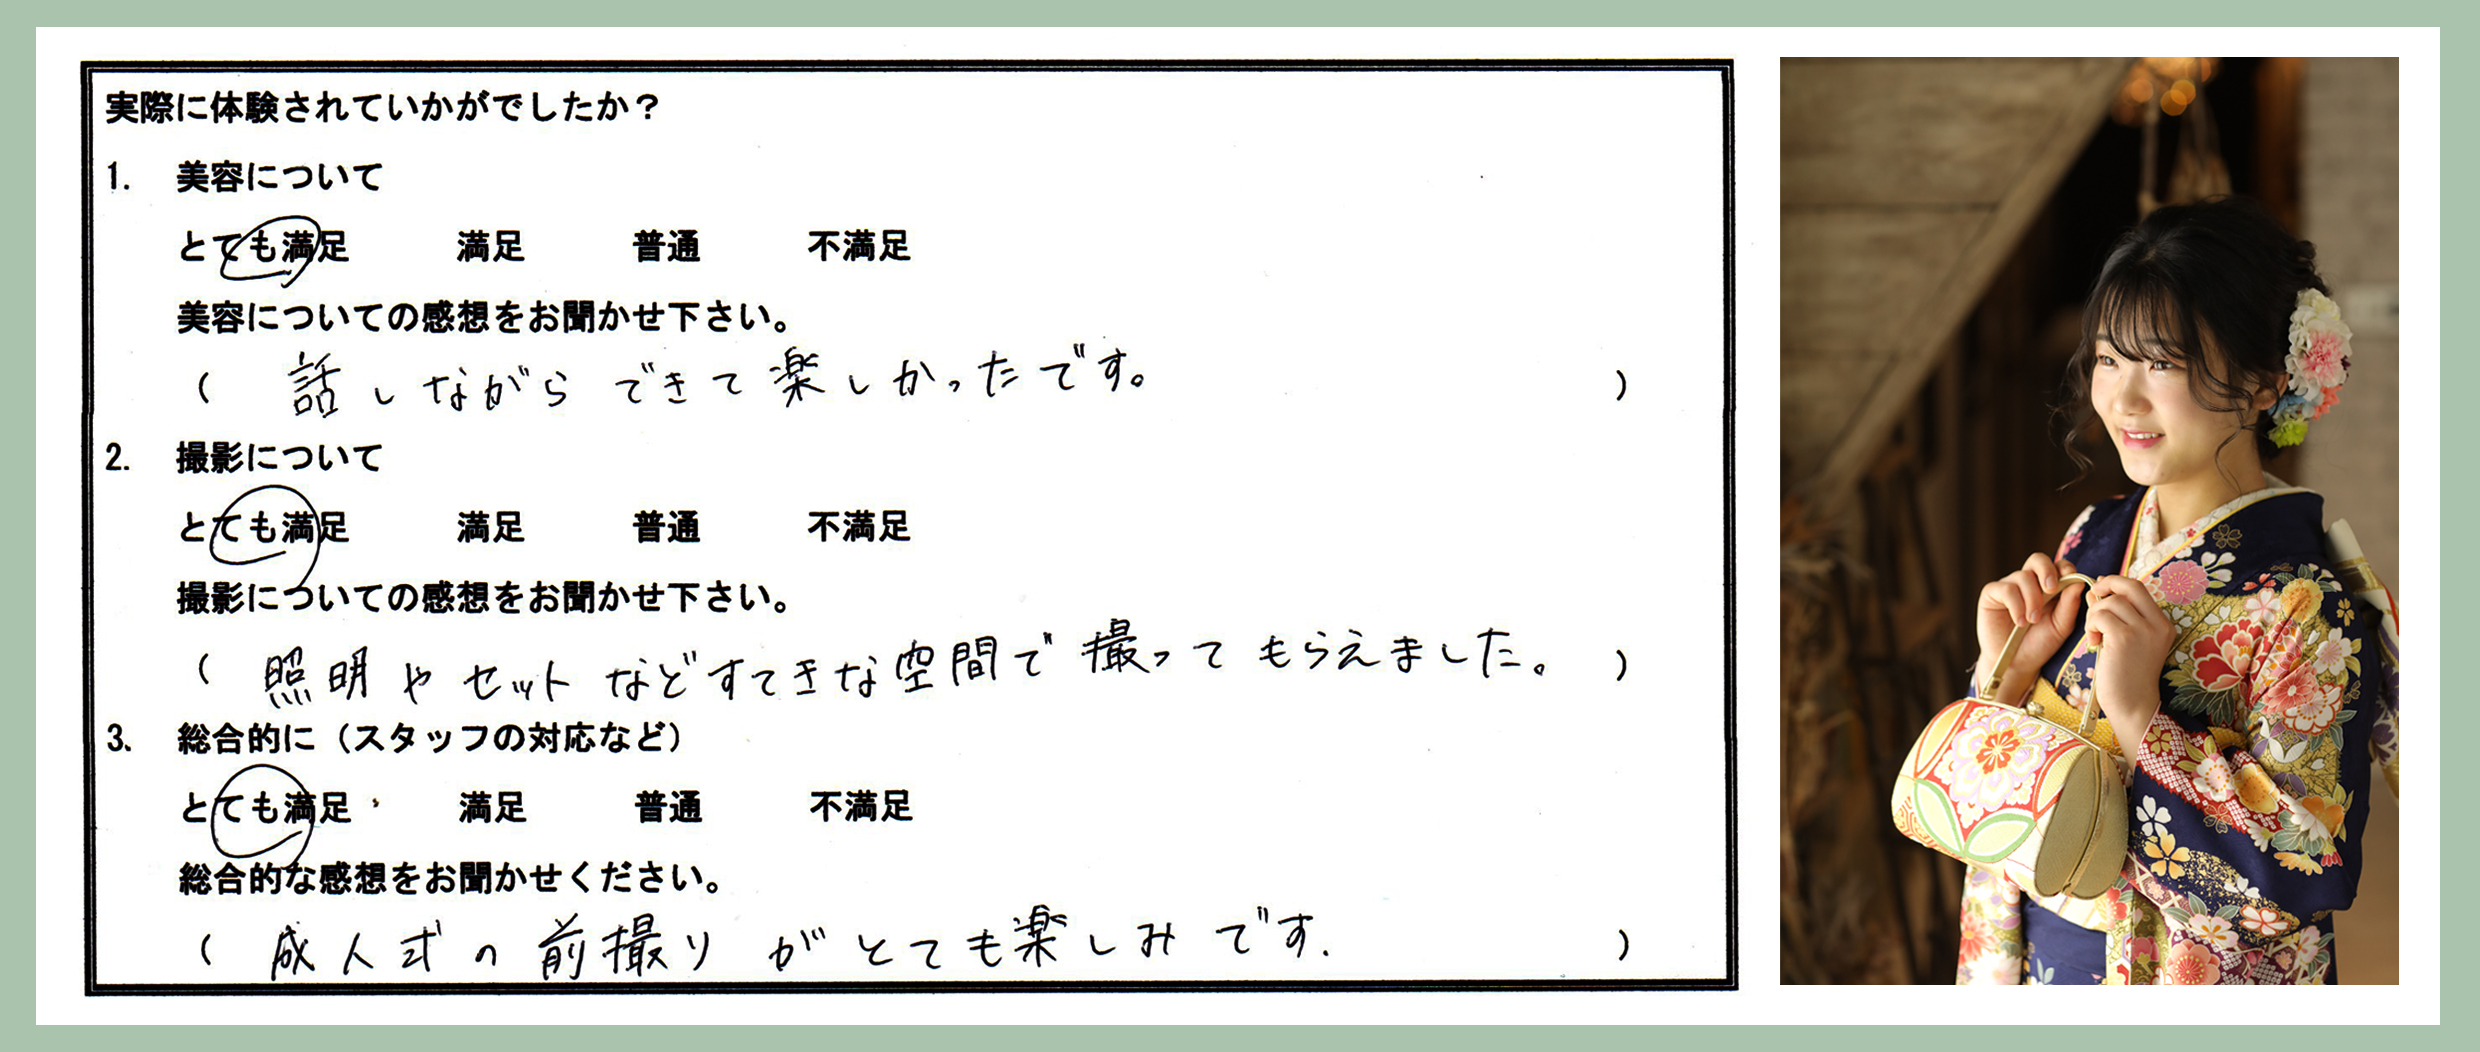 実際に体験されていかがでしたか？
1. 美容について
とても満足 満足 普通 不満足
美容についての感想をお聞かせ下さい。
( 話しながらできて楽しかったです。 )
2. 撮影について
とても満足 満足 普通 不満足
撮影についての感想をお聞かせ下さい。
( 照明やセットなどすてきな空間で撮ってもらえました。 )
3. 総合的に（スタッフの対応など）
とても満足 満足 普通 不満足
総合的な感想をお聞かせください。
( 成人式の前撮りがとても楽しみです. )